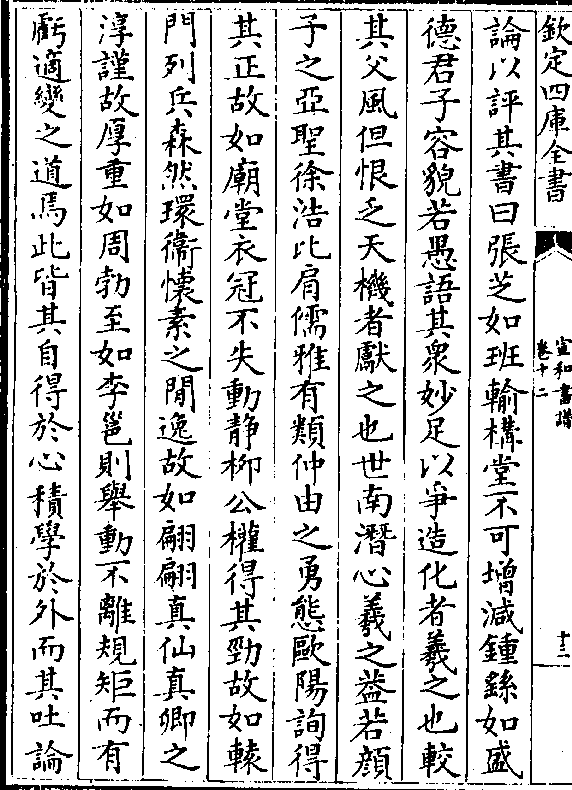 欽定四庫全書
宣和書譜
卷十二
十三
論以評其書曰張芝如班輸構堂不可增減鍾繇如盛
德君子容貌若愚語其衆妙足以爭造化者羲之也較
其父風但恨乏天機者獻之也世南潛心羲之益若顔
子之亞聖徐浩比肩儒雅有類仲由之勇態歐陽詢得
其正故如廟堂衣冠不失動静柳公權得其勁故如轅
門列兵森然環衞懷素之閒逸故如翩翩真仙真卿之
淳謹故厚重如周勃至如李邕則舉動不離規矩而有
虧適變之道焉此皆其自得於心積學於外而其吐論